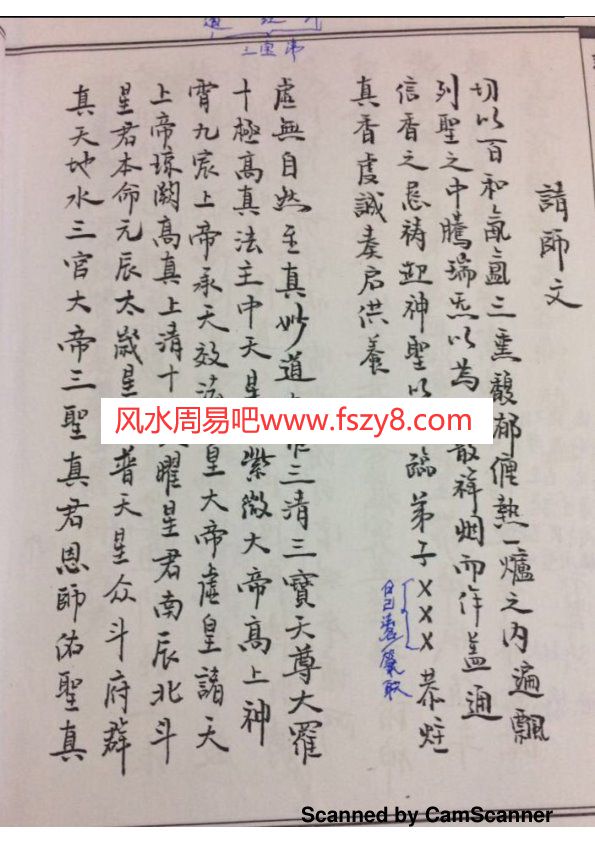 請師文
切以百和氤氳三熏馥郁俚熱一爐之內遍飄
列聖之中騰瑞炁以為 散祥烟而作蓋通
信香之忌祷 神聖以 臨弟子XXX恭炷
真香虔誠奏启供養
虛無自然至真妙道 三清三寶天尊大羅
十極高真法主中天星 紫微大帝高上神
霄九宸上帝承天效法 皇大帝虛皇諸天
上帝琼闕高真上清十 曜星君南辰北斗
星君本命元辰太歲星 普天星众斗府群
真天地水三官大帝三聖真君恩師佑聖真
自己
风水周易吧www.fszy8.com
Scanned by CamScanner